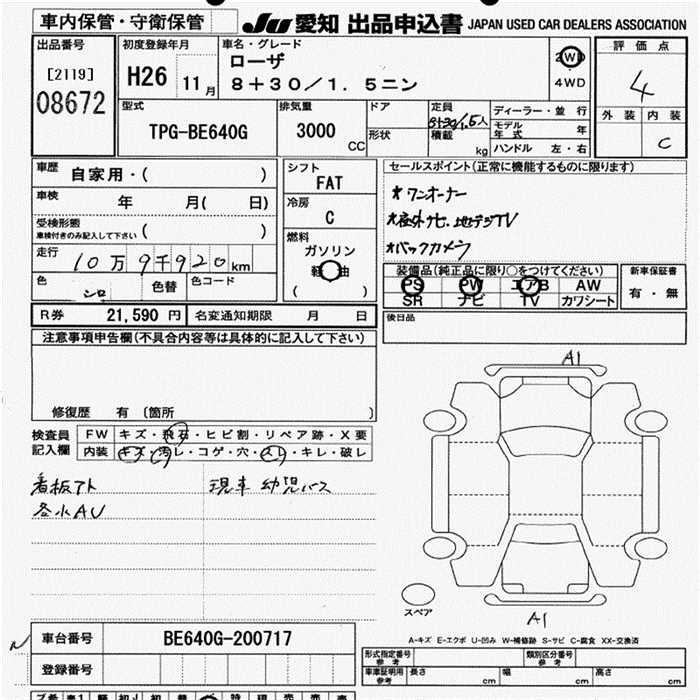 車内保管・守衛保管
JU 愛知 出品申込書 JAPAN USED CAR DEALERS ASSOCIATION
出品番号
[2119]
08672
初度登録年月
H26 11月
車名・グレード
ローザ
8+30/1.5ニン
2WD
4WD
評価点
4
外装 内装
C
型式
TPG-BE640G
排気量
3000
CC
ドア
形状
定員
8+30/1.5人
積載
kg
ディーラー・並行
モデル年式 年
ハンドル 左・右
車歴
自家用・( )
車検
年 月( 日)
受検形態
車検付きのみ記入して下さい ( )
走行
10万9千920km
色
シロ
色替
色コード
シフト
FAT
冷房
C
燃料
ガソリン
軽油
( )
セールスポイント(正常に機能するものに限ります)
*ワンオーナー
*社外ナビ、地デジTV
*バックカメラ
装備品(純正品に限り○をつけてください)
PS PW エアB AW
SR ナビ TV カワシート
新車保証書
有・無
R券 21,590円
名変通知期限 月 日
後日品
注意事項申告欄(不具合内容等は具体的に記入して下さい)
修復歴 有 〔箇所 〕
検査員記入欄
FW キズ・飛石・ヒビ割・リペア跡・X要
内装 キズ・汚レ・コゲ・穴・スレ・キレ・破レ
看板アト
現車 幼児バス
各小AU
A1
スペア
A1
A-キズ E-エクボ U-凹み W-補修跡 S-サビ C-腐食 XX-交換済
車台番号
BE640G-200717
登録番号
型式指定番号
参考
類別区分番号
参考
車庫証明用
参考
長さ cm
幅 cm
高さ cm